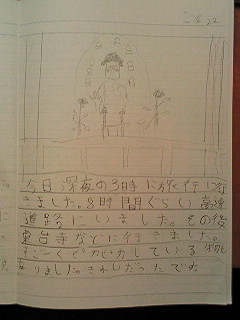 今日深夜の3時に旅行に行
きました。8時間ぐらい高速
道路にいました。その後
東台寺などに行きました。
すごくピカピカしている物が
ありました。きれいだったです